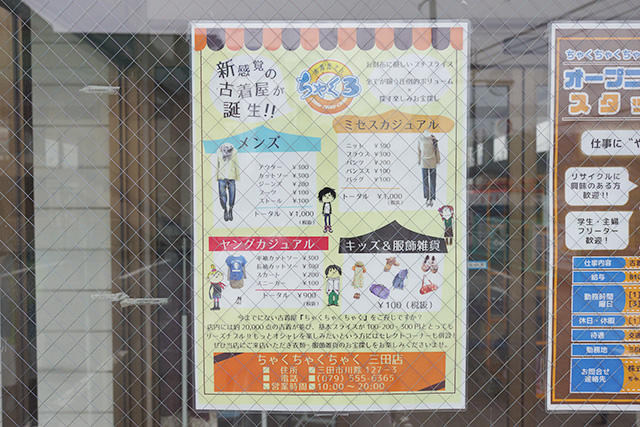 新感覚の
古着屋が
誕生!!
ちゃくろ
お財布に嬉しいプチプライス
全てが揃う圧倒的ボリューム
探す楽しみお宝探し
メンズ
アウター ¥300
カットソー ¥300
ジーンズ ¥200
スーツ ¥100
ストール ¥100
トータル ¥1,000
(税抜)
ミセスカジュアル
ニット ¥300
ブラウス ¥300
パンツ ¥200
パンプス ¥100
バッグ ¥100
トータル ¥1,000
(税抜)
ヤングカジュアル
半袖カットソー ¥300
長袖カットソー ¥300
スカート ¥200
スニーカー ¥100
トータル ¥900
(税抜)
キッズ&服飾雑貨
¥100(税抜)
今までにない古着屋『ちゃくちゃくちゃく』をご存じですか?
店内には約20,000点の古着が並び、基本プライスが100・200・300円ととっても
リーズナブル!!もっとオシャレを楽しみたいという方にはセレクトコーナーも併設
ぜひ当店にご来店いただき衣類・服飾雑貨のお宝探しをお楽しみくださいませ。
ちゃくちゃくちゃく 三田店
住所 三田市川除127-3
電話 (079) 555-6365
営業時間 10:00~20:00
ちゃくちゃくちゃ
オープニ
スタ
仕事に
リサイクルに
興味のある方
歓迎!!
学生・主婦
フリーター
歓迎!
仕事内容 古着
給与
勤務時間
曜日
休日・休暇
待遇 交通
勤務地
お問合せ
連絡先